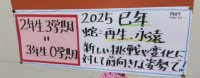 2年生3学期
=
3年生0学期
2025 巳年
蛇…再生、永遠
新しい挑戦や変化に
対して前向きな姿勢で!